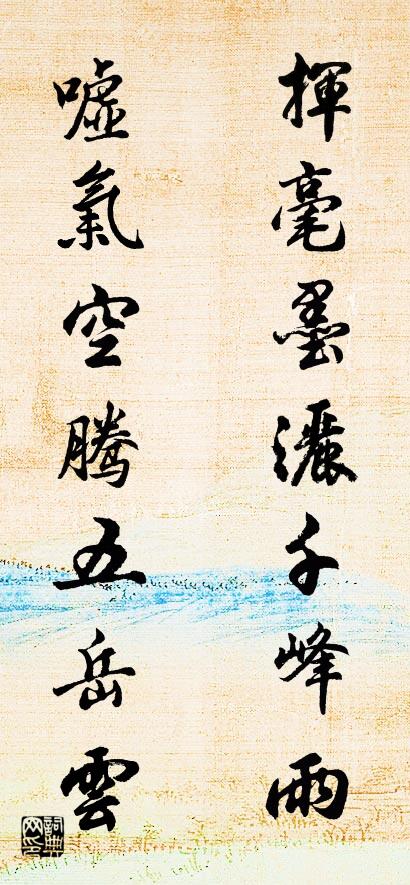 揮毫墨灑千峰雨
噓氣空騰五岳雲
詞典
网印